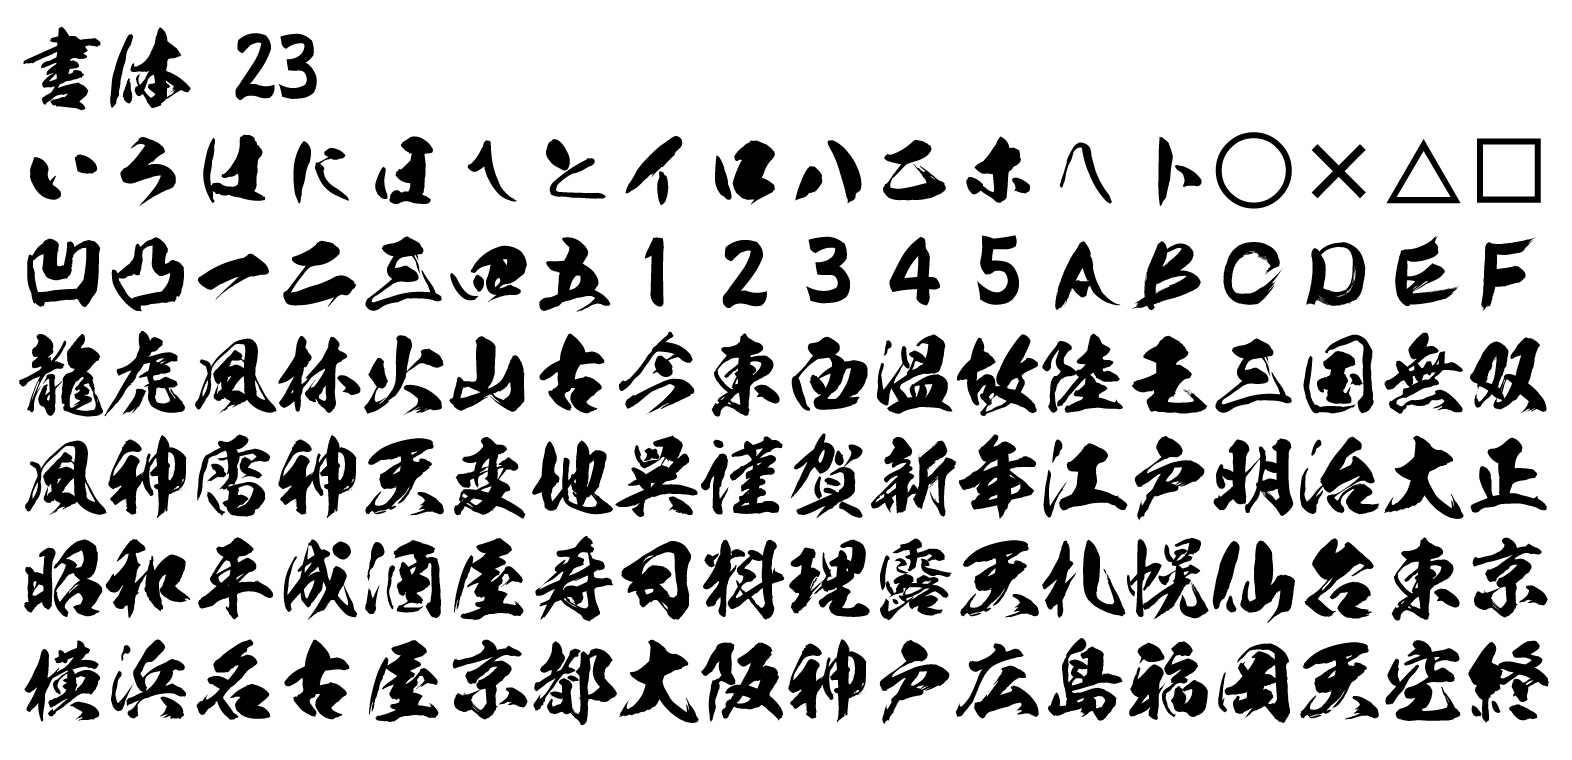 書体 23
いろはにほへとイロハニホヘト○×△□
凹凸一二三四五12345ABCDEF
龍虎風林火山古今東西温故陸王三国無双
風神雷神天変地異謹賀新年江戸明治大正
昭和平成酒屋寿司料理露天札幌仙台東京
横浜名古屋京都大阪神戸広島福岡天空終